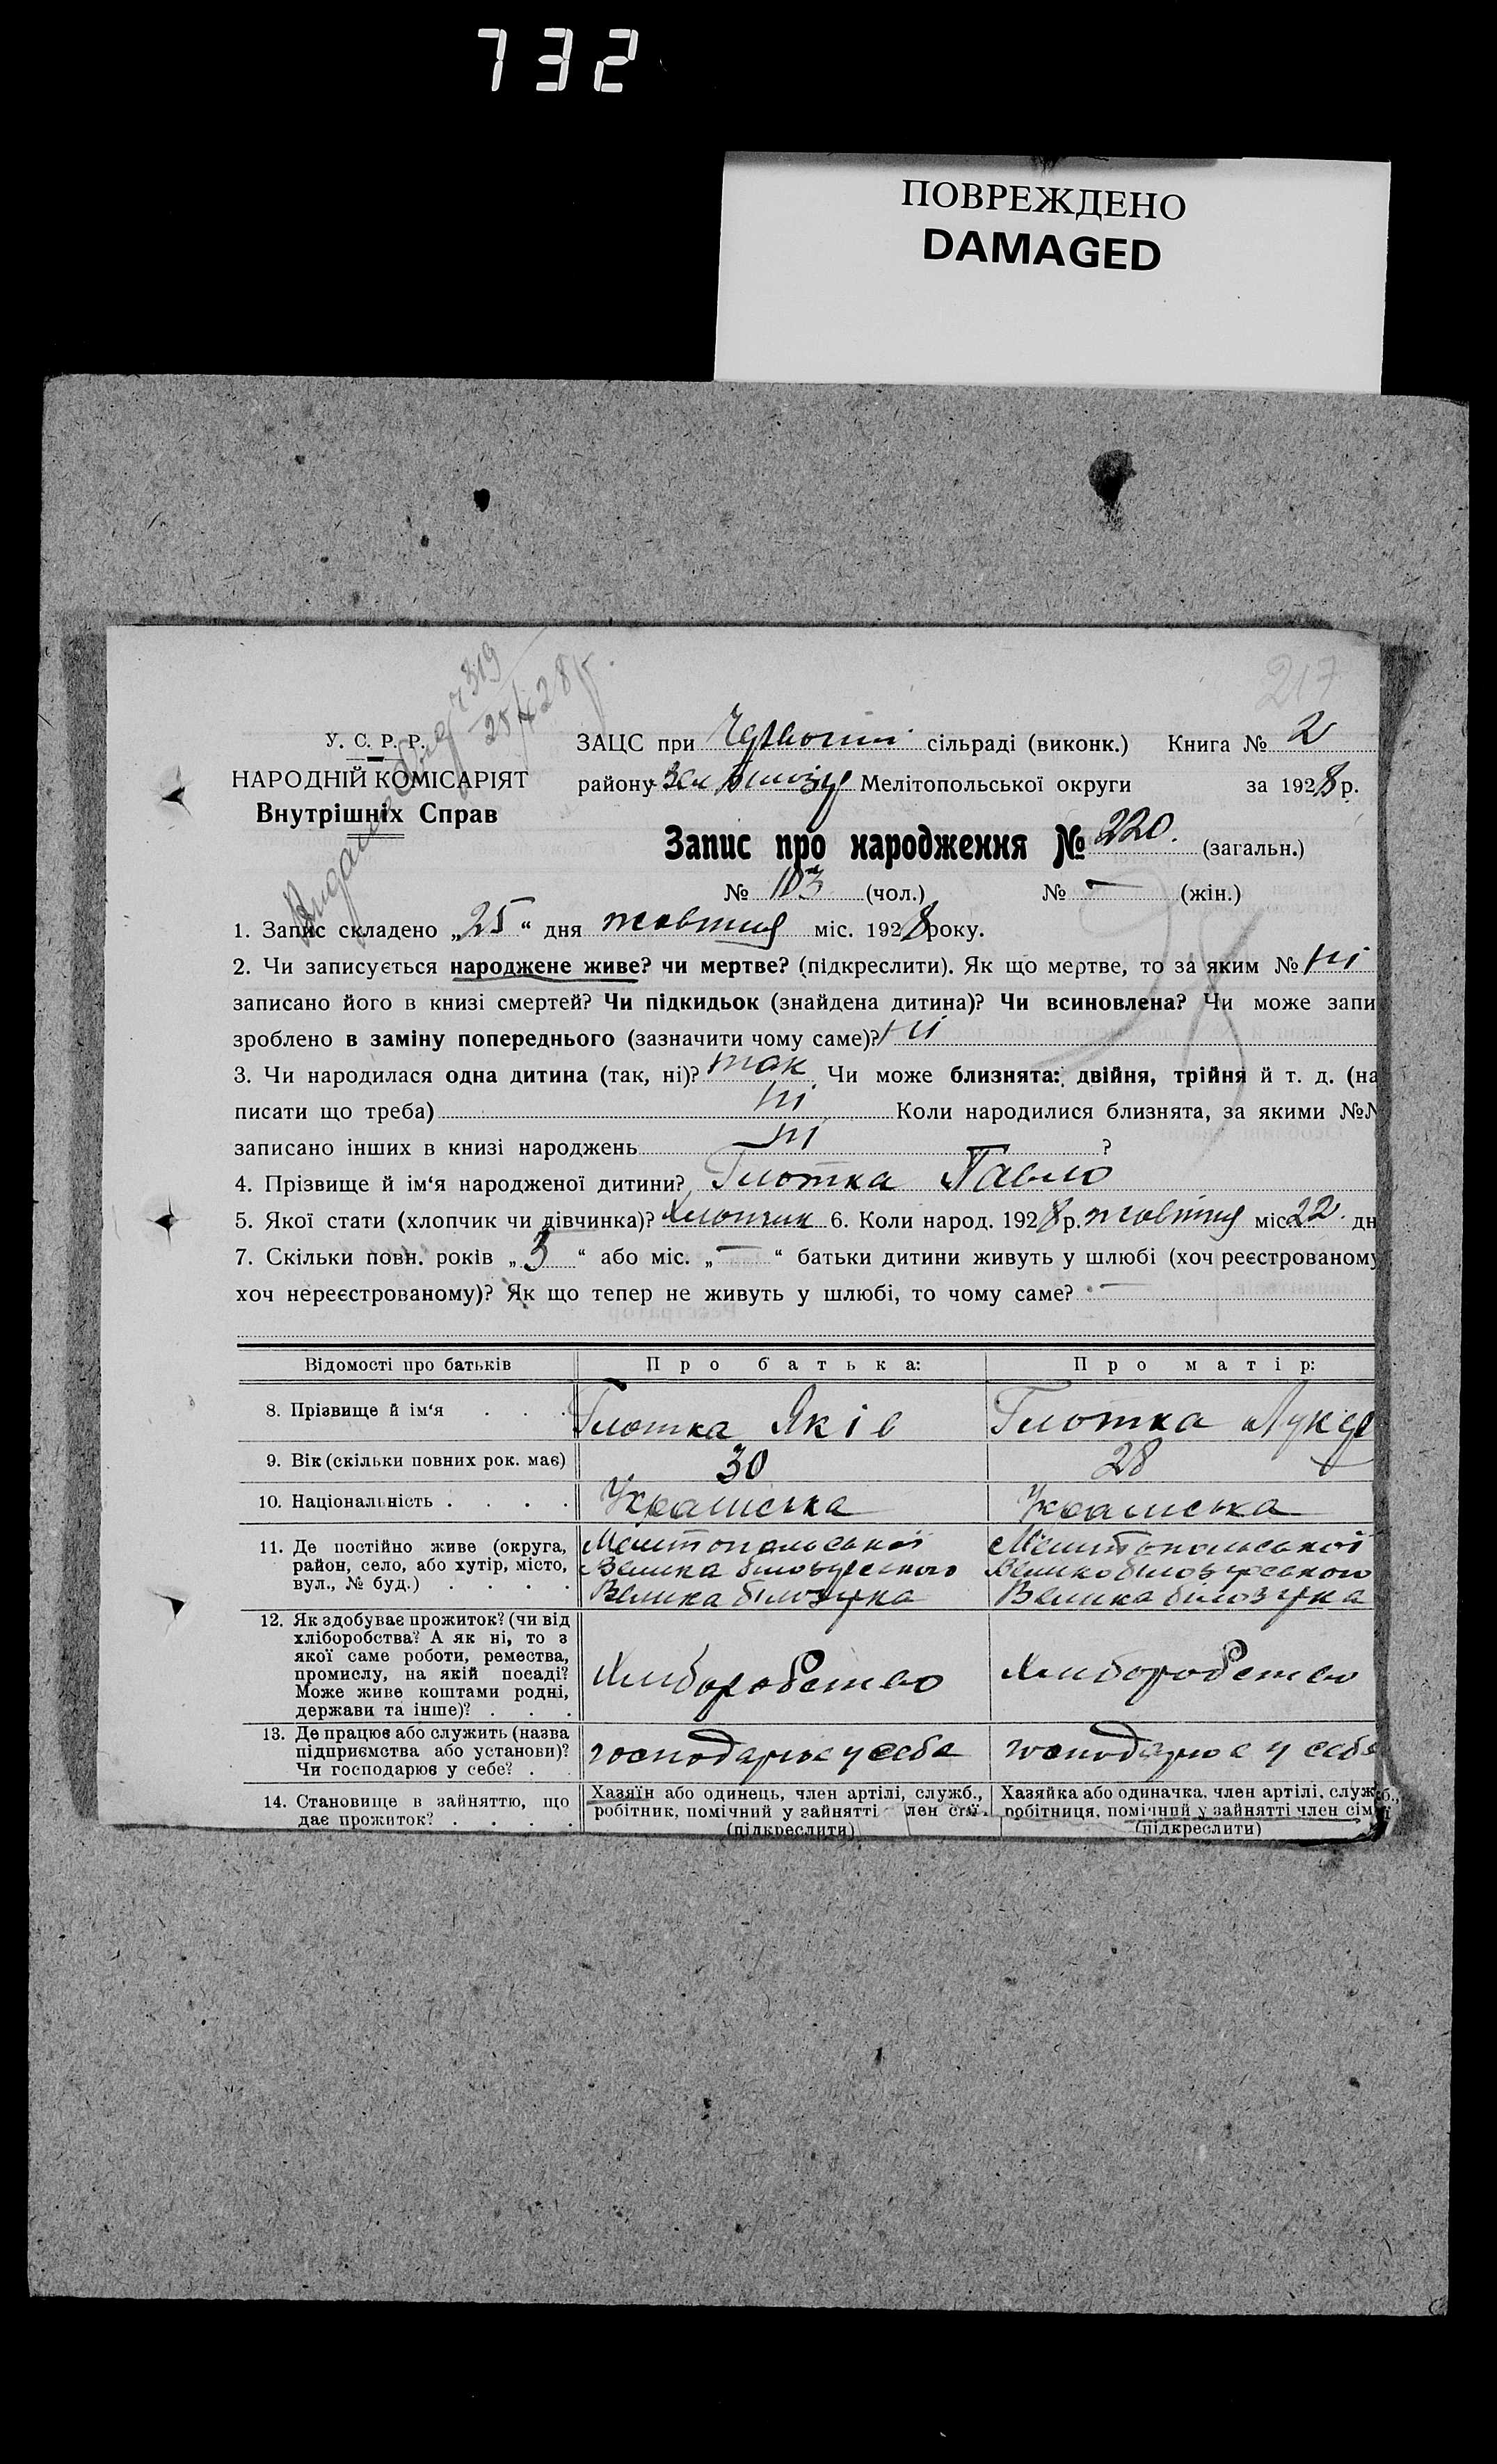 732
ПОВРЕЖДЕНО
DAMAGED
319
25/X 28 р.
217
У. С. Р. Р.
НАРОДНІЙ КОМІСАРІЯТ
Внутрішніх Справ
ЗАЦС при сільраді (виконк.) Книга № 2
району Мелітопольської округи за 1928 р.
Запис про народження № 220. (загальн.)
№ 103 (чол.) № — (жін.)
1. Запис складено „25“ дня жовтня міс. 1928 року.
2. Чи записується народжене живе? чи мертве? (підкреслити). Як що мертве, то за яким № ні
записано його в книзі смертей? Чи підкидьок (знайдена дитина)? Чи всиновлена? Чи може запи
зроблено в заміну попереднього (зазначити чому саме)? ні
3. Чи народилася одна дитина (так, ні)? так Чи може близнята: двійня, трійня й т. д. (на
писати що треба) ні Коли народилися близнята, за якими №№
записано інших в книзі народжень ні ?
4. Прізвище й ім‘я народженої дитини? Глотка Павло
5. Якої стати (хлопчик чи дівчинка)? Хлопчик 6. Коли народ. 1928 р. жовтня міс. 22 дн
7. Скільки повн. років „3“ або міс. „—“ батьки дитини живуть у шлюбі (хоч реєстрованому
хоч нереєстрованому)? Як що тепер не живуть у шлюбі, то чому саме? —
Відомості про батьків Про батька: Про матір:
8. Прізвище й ім‘я . . . Глотка Яків Глотка Лукер
9. Вік (скільки повних рок. має) 30 28
10. Національність . . . . Українська Українська
11. Де постійно живе (округа, Мелітопольської Мелітопольської
район, село, або хутір, місто, Велика білозерського Великобілозерського
вул., № буд.) . . . . Велика білозерка Велика білозерка
12. Як здобуває прожиток? (чи від
хліборобства? А як ні, то з
якої саме роботи, ремества,
промислу, на якій посаді? Хліборобство Хліборобство
Може живе коштами родні,
держави та інше)? . . .
13. Де працює або служить (назва
підприємства або установи)? господарює у себе господарює у себе
Чи господарює у себе? .
14. Становище в зайняттю, що Хазяїн або одинець, член артілі, служб., Хазяйка або одиначка, член артілі, служб.,
дає прожиток? . . . . робітник, помічний у зайнятті член сім'ї. робітниця, помічний у зайнятті член сім'ї
(підкреслити) (підкреслити)